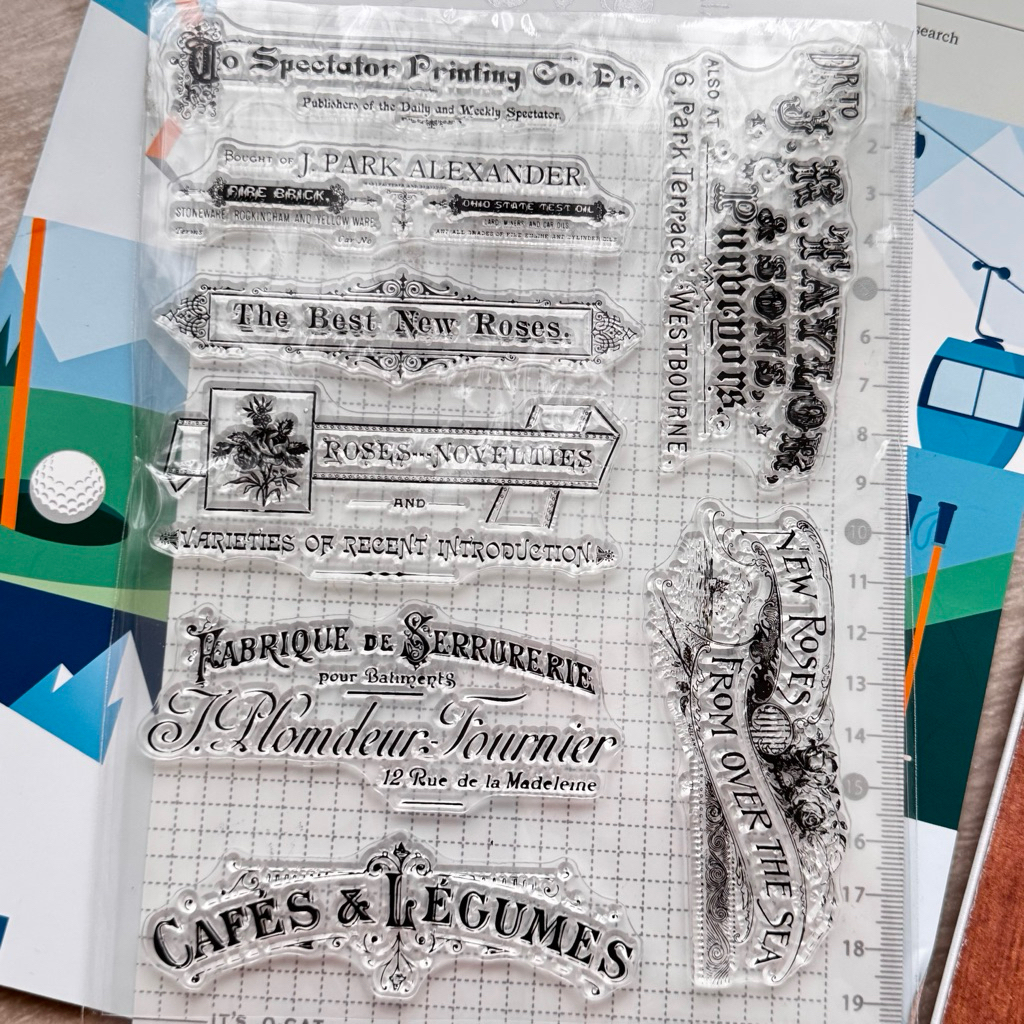 To Spectator Printing Co. Dr.
Publishers of the Daily and Weekly Spectator
BOUGHT OF J. PARK ALEXANDER
FIRE BRICK.
STONEWARE, ROCKINGHAM AND YELLOW WARE
Terms
Car No
OHIO STATE TEST OIL
LARD, WINERY, AND CAR OILS
AND ALL GRADES OF FINE ENGINE AND CYLINDER OILS
The Best New Roses.
ROSES---NOVELTIES
AND
VARIETIES OF RECENT INTRODUCTION.
FABRIQUE DE SERRURERIE
pour Batiments
J. Plomdeur-Fournier
12 Rue de la Madeleine
CAFÉS & LÉGUMES
DR TO
J. K. TAYLOR
& SONS,
Purveyors.
ALSO AT
6, Park Terrace, WESTBOURNE.
NEW ROSES
FROM OVER THE SEA
2
3
4
6
7
8
9
10
11
12
13
14
15
16
17
18
19
search
IT'S